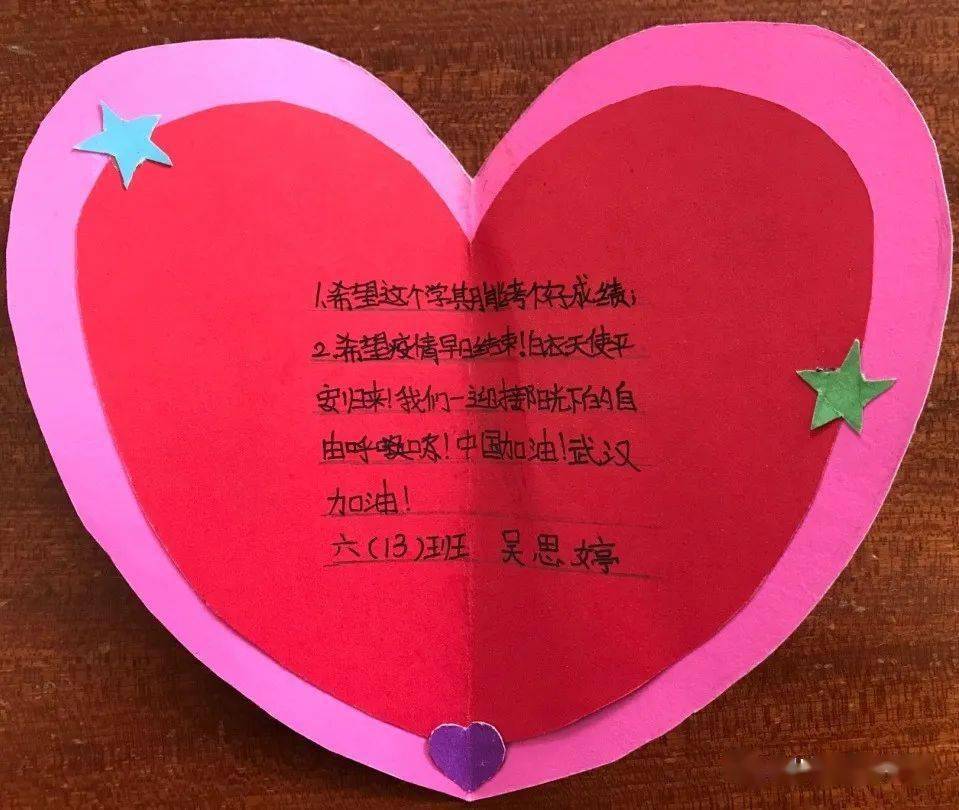 1.希望这个学期能考个好成绩;
2.希望疫情早日结束!白衣天使平
安归来!我们一迎接阳光下的自
由呼吸!中国加油!武汉
加油!
六(13)班 吴思婷